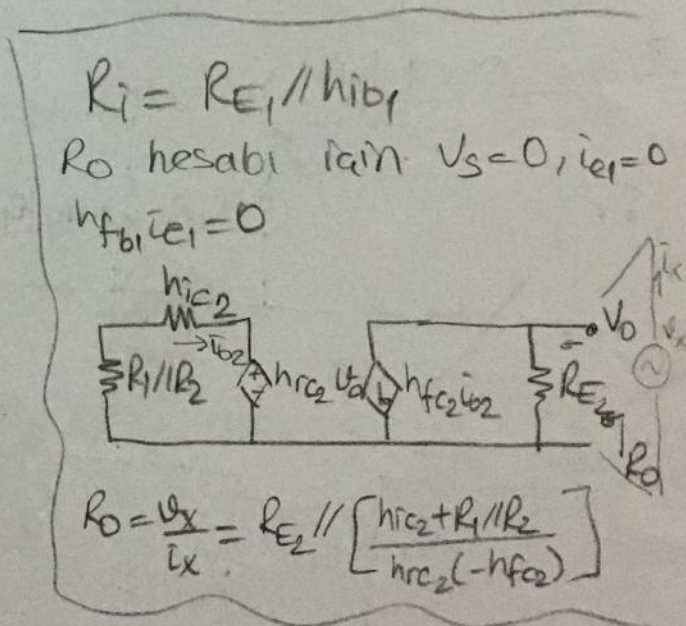 Ri = RE1 // hib1
Ro hesabı için Vs=0, ie1=0
hfb1 ie1=0
hic2
→ib2
R1//R2
hrc2 Vo
hfc2 ib2
RE2
Vo
ix
Vx
Ro
Ro = Vx/ix = RE2 // [(hic2+R1//R2)/(hrc2(-hfc2))]